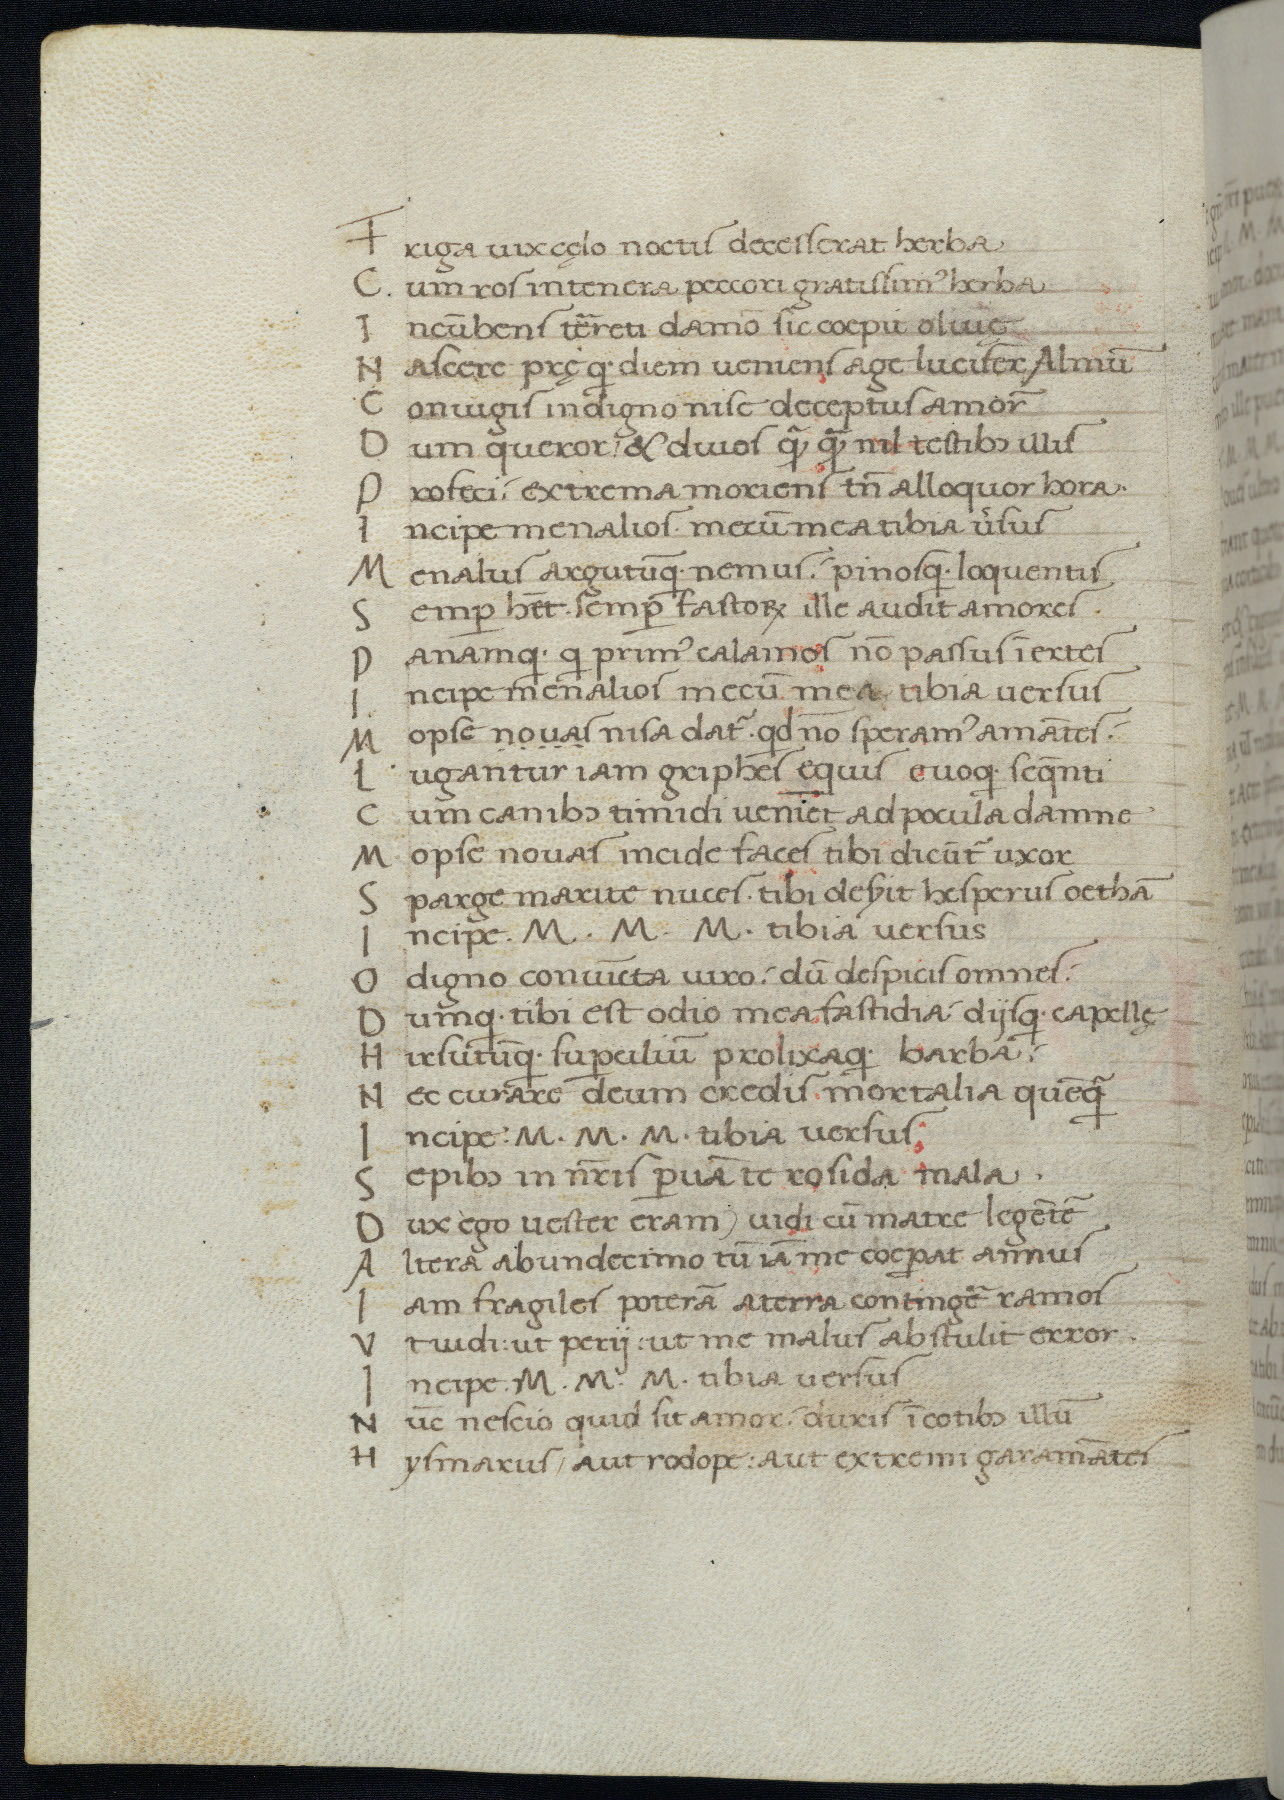 Friga uix cęlo noctis decesserat herba
C. um ros in tenera peccori gratissimꝰ herba
Incūbens tēreti damō sic coepit oliuę
Nascere pręq̄· diem ueniens age lucifer Almū
Coniugis indigno nise deceptus amor̄
Dum queror: & diuos q̄ q̄ nil testibꝫ illis
Profeci: extrema moriens tn̄ alloquor hora.
Incipe menalios mecū mea tibia ūsus
Menalus argutūq̄· nemus: pinosq̄· loquentis
Semꝑ hēt. semꝑ fastoꝝ ille audit amores.
Panamq̄· q̄ primꝰ calamos nō passus īertes
Incipe menalios mecū mea tibia uersus
Mopse nouas nisa datr̄· qd nō speramꝰ amātes:
Lugantur iam griphes equis euoq̄· seq̄nti
Cum canibꝫ timidi ueniet ad pocula damne
Mopse nouas incide faces tibi dicūtr̄ uxor
Sparge marite nuces. tibi desyit hesperus oethā
Incipe. M. M. M. tibia uersus
O digno coniūcta uiro: dū despicis omnes:
Dumq̄· tibi est odio mea fastidia: dijsq̄· capellę
Hirsutūq̄· suꝑciliū prolixaq̄· barba:
Nec curare deum credis mortalia quēq̄
Incipe: M. M. M. tibia uersus
Sepibꝫ in nr̄is ꝑuā te rosida mala.
Dux ego uester eram) uidi cū matre legētē
Altera abundecimo tū iā me coeꝑat annus
Iam fragiles poterā aterra contingē ramos
Vt uidi: ut perij: ut me malus abstulit error.
Incipe: M. M. M. tibia uersus
Nūc nescio quid sit amor: duris ī cotibꝫ illū
Hysmarus / aut rodope: aut extremi garamātes